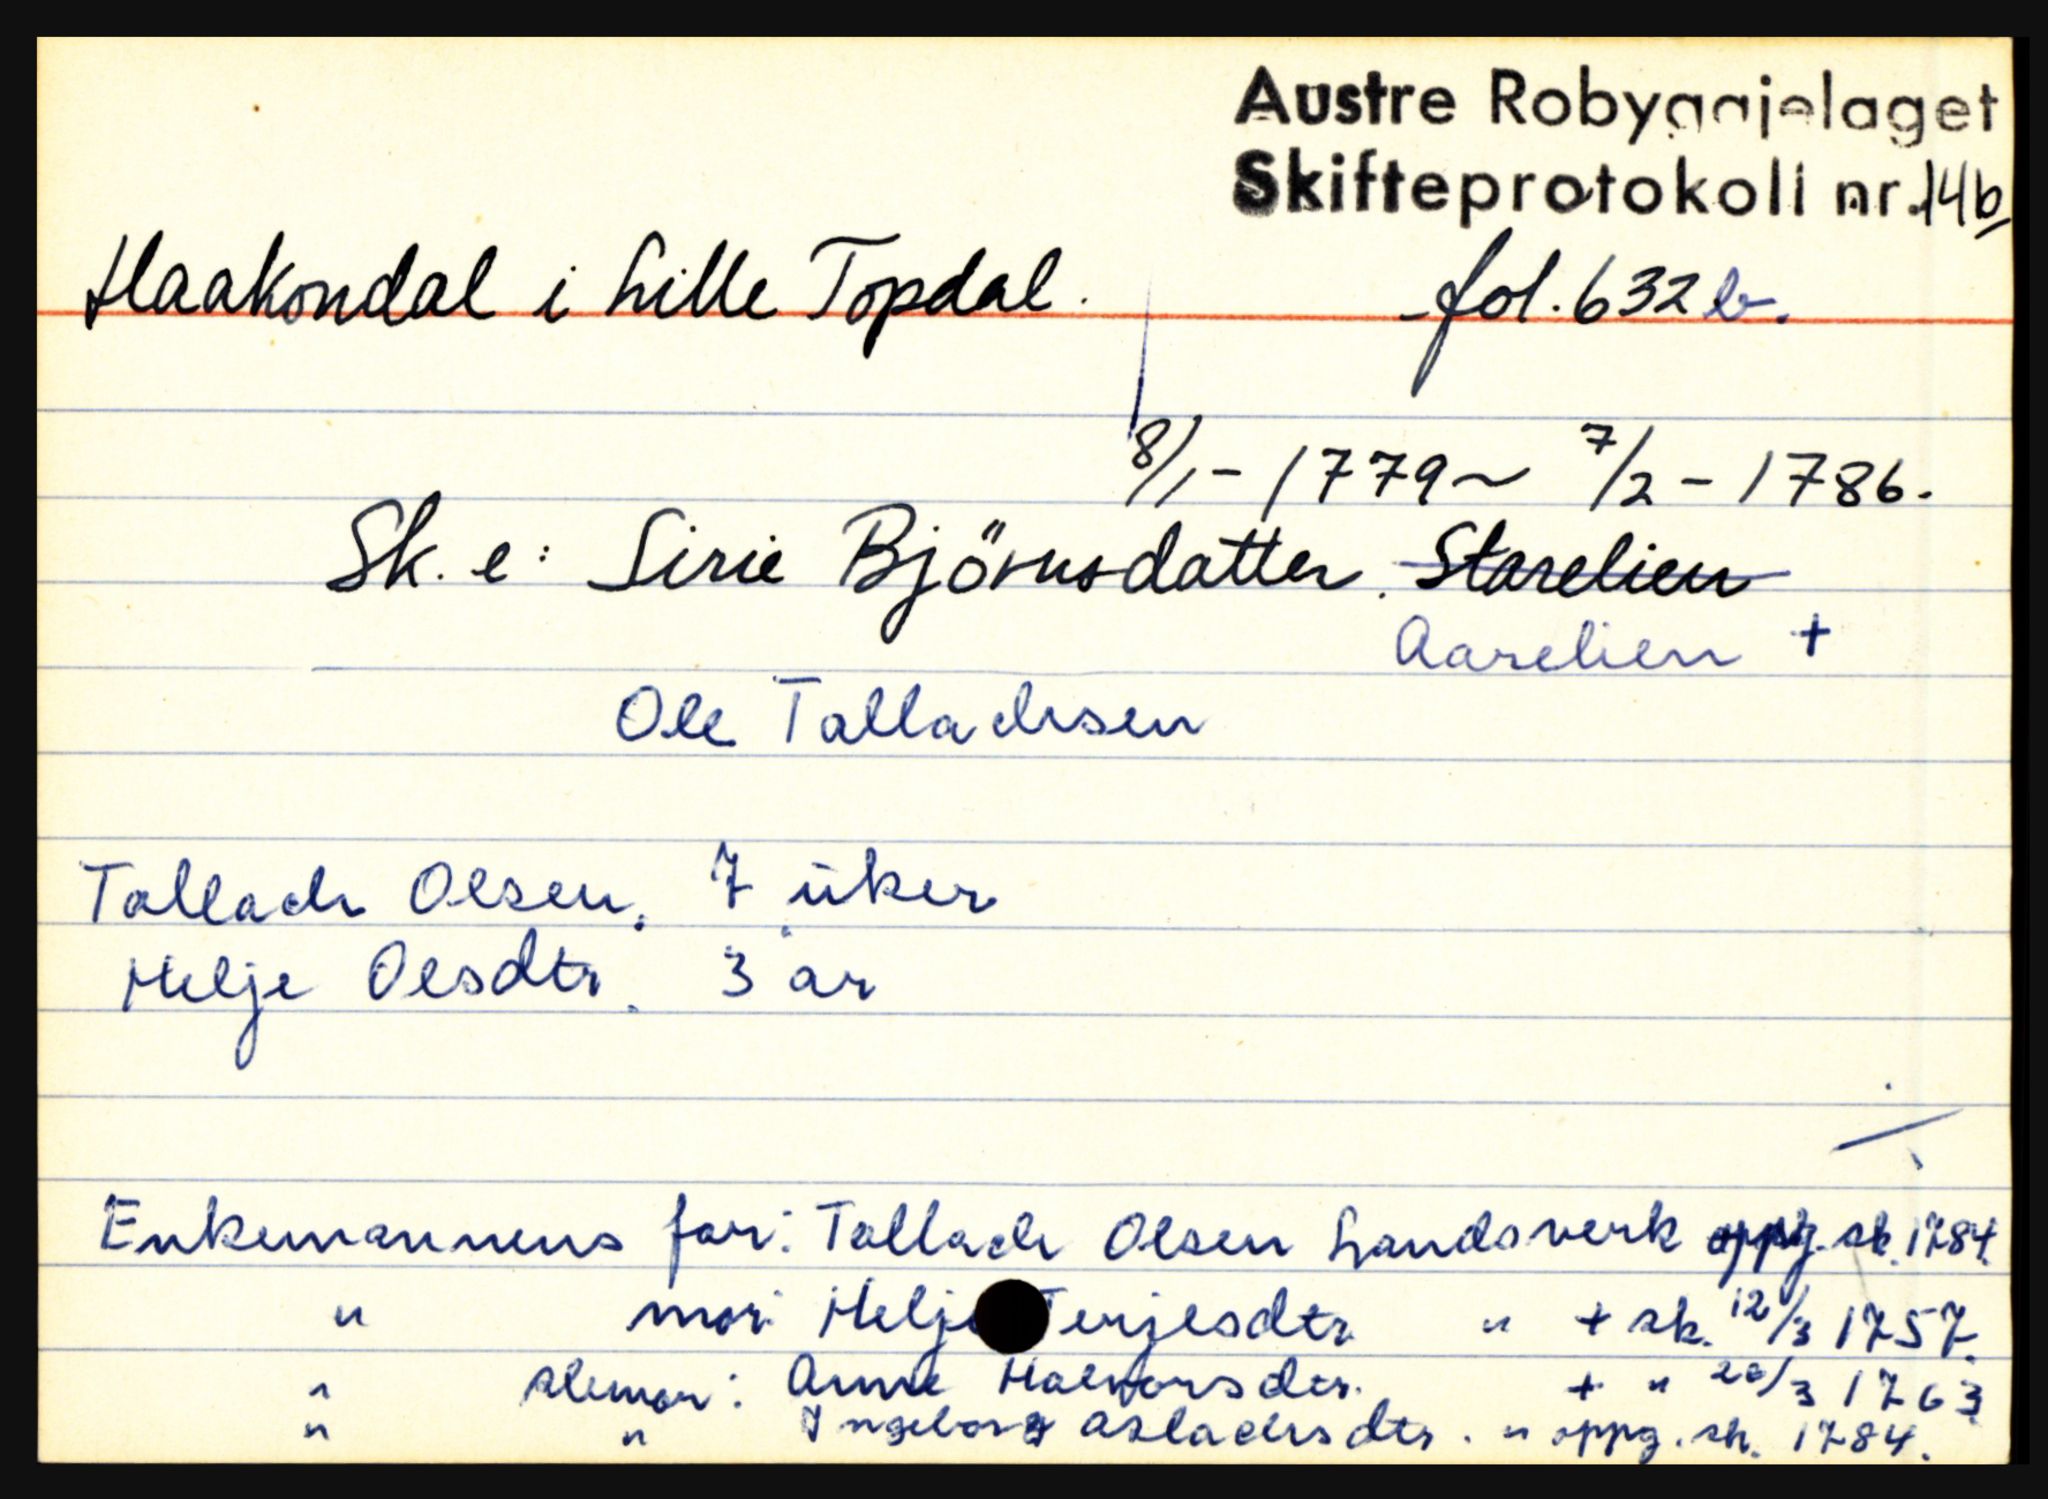 Austre Robyggjelaget
Skifteprotokoll nr. 14b,
Haakondal i Lille Topdal. fol. 632 b.
8/1 - 1779 ~ 7/2 - 1786.
Sk. e: Sirie Björnsdatter. Starelien
Aarelien +
Ole Tallachsen
Tallach Olsen. 7 uker
Helje Olsdtr. 3 år
Enkemannens far: Tallach Olsen Landsverk oppg. sk. 1784.
" mor: Helje Terjesdtr. " + sk. 12/3 1757.
" stemor: Anne Halvorsdtr. + " 26/3 1763
" " Ingeborg Aslachsdtr. " oppg. sk. 1784.